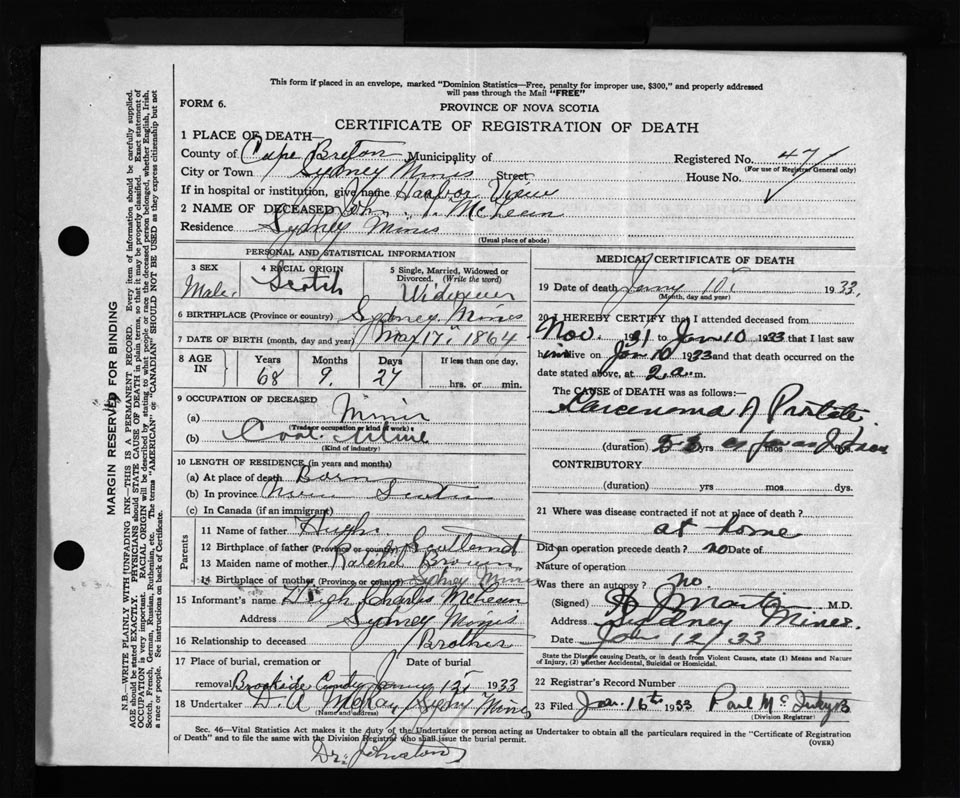 This form if placed in an envelope, marked "Dominion Statistics—Free, penalty for improper use, $300," and properly addressed
will pass through the Mail "FREE"
FORM 6.
PROVINCE OF NOVA SCOTIA
CERTIFICATE OF REGISTRATION OF DEATH
1 PLACE OF DEATH—
County of Cape Breton Municipality of
Registered No. 47
(For use of Registrar General only)
City or Town Sydney Mines Street
House No.
If in hospital or institution, give name Harbor View
2 NAME OF DECEASED John McLean
Residence Sydney Mines
(Usual place of abode)
PERSONAL AND STATISTICAL INFORMATION
3 SEX
Male.
4 RACIAL ORIGIN
Scotch
5 Single, Married, Widowed or
Divorced. (Write the word)
Widower
6 BIRTHPLACE (Province or country) Sydney Mines
7 DATE OF BIRTH (month, day and year) Mar 17. 1864
8 AGE
IN
Years
68
Months
9.
Days
27
If less than one day,
hrs. or min.
9 OCCUPATION OF DECEASED
(a) Miner
(Trade, occupation or kind of work)
(b) Coal Mine
(Kind of industry)
10 LENGTH OF RESIDENCE (in years and months)
(a) At place of death Born
(b) In province Nova Scotia
(c) In Canada (if an immigrant)
Parents
11 Name of father Hugh
12 Birthplace of father (Province or country) Scotland
13 Maiden name of mother Ratchel Brown
14 Birthplace of mother (Province or country) Sydney Mines
15 Informant's name Hugh Charles McLean
Address Sydney Mines
16 Relationship to deceased Brother
17 Place of burial, cremation or
Date of burial
removal Brookside 1933
18 Undertaker D. A McKay, Sydney Mines
(Name and address)
MEDICAL CERTIFICATE OF DEATH
19 Date of death 10 1933.
(Month, day and year)
20 I HEREBY CERTIFY that I attended deceased from
Nov. 1931 to Jan 10 1933 that I last saw
him alive on Jan 10 1933 and that death occurred on
date stated above, at 2 a. m.
The CAUSE OF DEATH was as follows:
Carcenoma of Prostate
(duration) yrs mos dys.
CONTRIBUTORY
(duration) yrs mos dys.
21 Where was disease contracted if not at place of death?
at home
Did an operation precede death? no Date of
Nature of operation
Was there an autopsy? No
(Signed) M.D.
Address Sydney Mines.
Date Jan 12/33
State the Disease causing Death, or in death from Violent Causes, state (1) Means and Nature
of Injury, (2) whether Accidental, Suicidal or Homicidal.
22 Registrar's Record Number
23 Filed Jan. 16th 1933
(Division Registrar)
Sec. 46—Vital Statistics Act makes it the duty of the Undertaker or person acting as Undertaker to obtain all the particulars required in the "Certificate of Registration
of Death" and to file the same with the Division Registrar who shall issue the burial permit.
(OVER)
Dr. Johnston
MARGIN RESERVED FOR BINDING
N.B.—WRITE PLAINLY WITH UNFADING INK—THIS IS A PERMANENT RECORD. Every item of information should be carefully supplied.
AGE should be stated EXACTLY. PHYSICIANS should STATE CAUSE OF DEATH in plain terms, so that it may be properly classified. Exact statement of
OCCUPATION is very important. RACIAL ORIGIN will be described by stating to what people or race the deceased person belonged, whether English, Irish,
Scotch, French, German, Russian, Ruthenian, etc. The terms "AMERICAN" or "CANADIAN" SHOULD NOT BE USED as they express citizenship but not
a race or people. See instructions on back of Certificate.